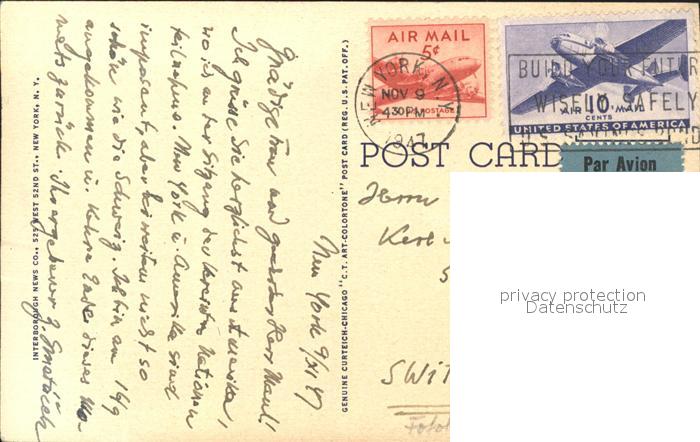 New York 9/XI 47
Gnädige Frau und geehrter Herr
Ich grüsse Sie herzlichst aus Amerika,
wo ich an der Sitzung der Vereinten Nationen
teilnehme. New York u. Amerika sind
imposant, aber bei weitem nicht so
schön wie die Schweiz. Ich bin am 16/9
angekommen u. kehre Ende dieses Mo-
nats zurück. Ihr ergebener J.
INTERBOROUGH NEWS CO., 525 WEST 52ND ST., NEW YORK, N. Y.
GENUINE CURTEICH-CHICAGO "C.T. ART-COLORTONE" POST CARD (REG. U.S. PAT. OFF.)
AIR MAIL
5¢
U.S. POSTAGE
NEW YORK, N.Y.
NOV 9
430 PM
1947
BUILD YOUR FUTURE
WISELY SAFELY
U.S. SAVINGS BOND
AIR 10 MAIL
CENTS
UNITED STATES OF AMERICA
POST CARD
Par Avion
Herrn
SWIT
privacy protection
Datenschutz